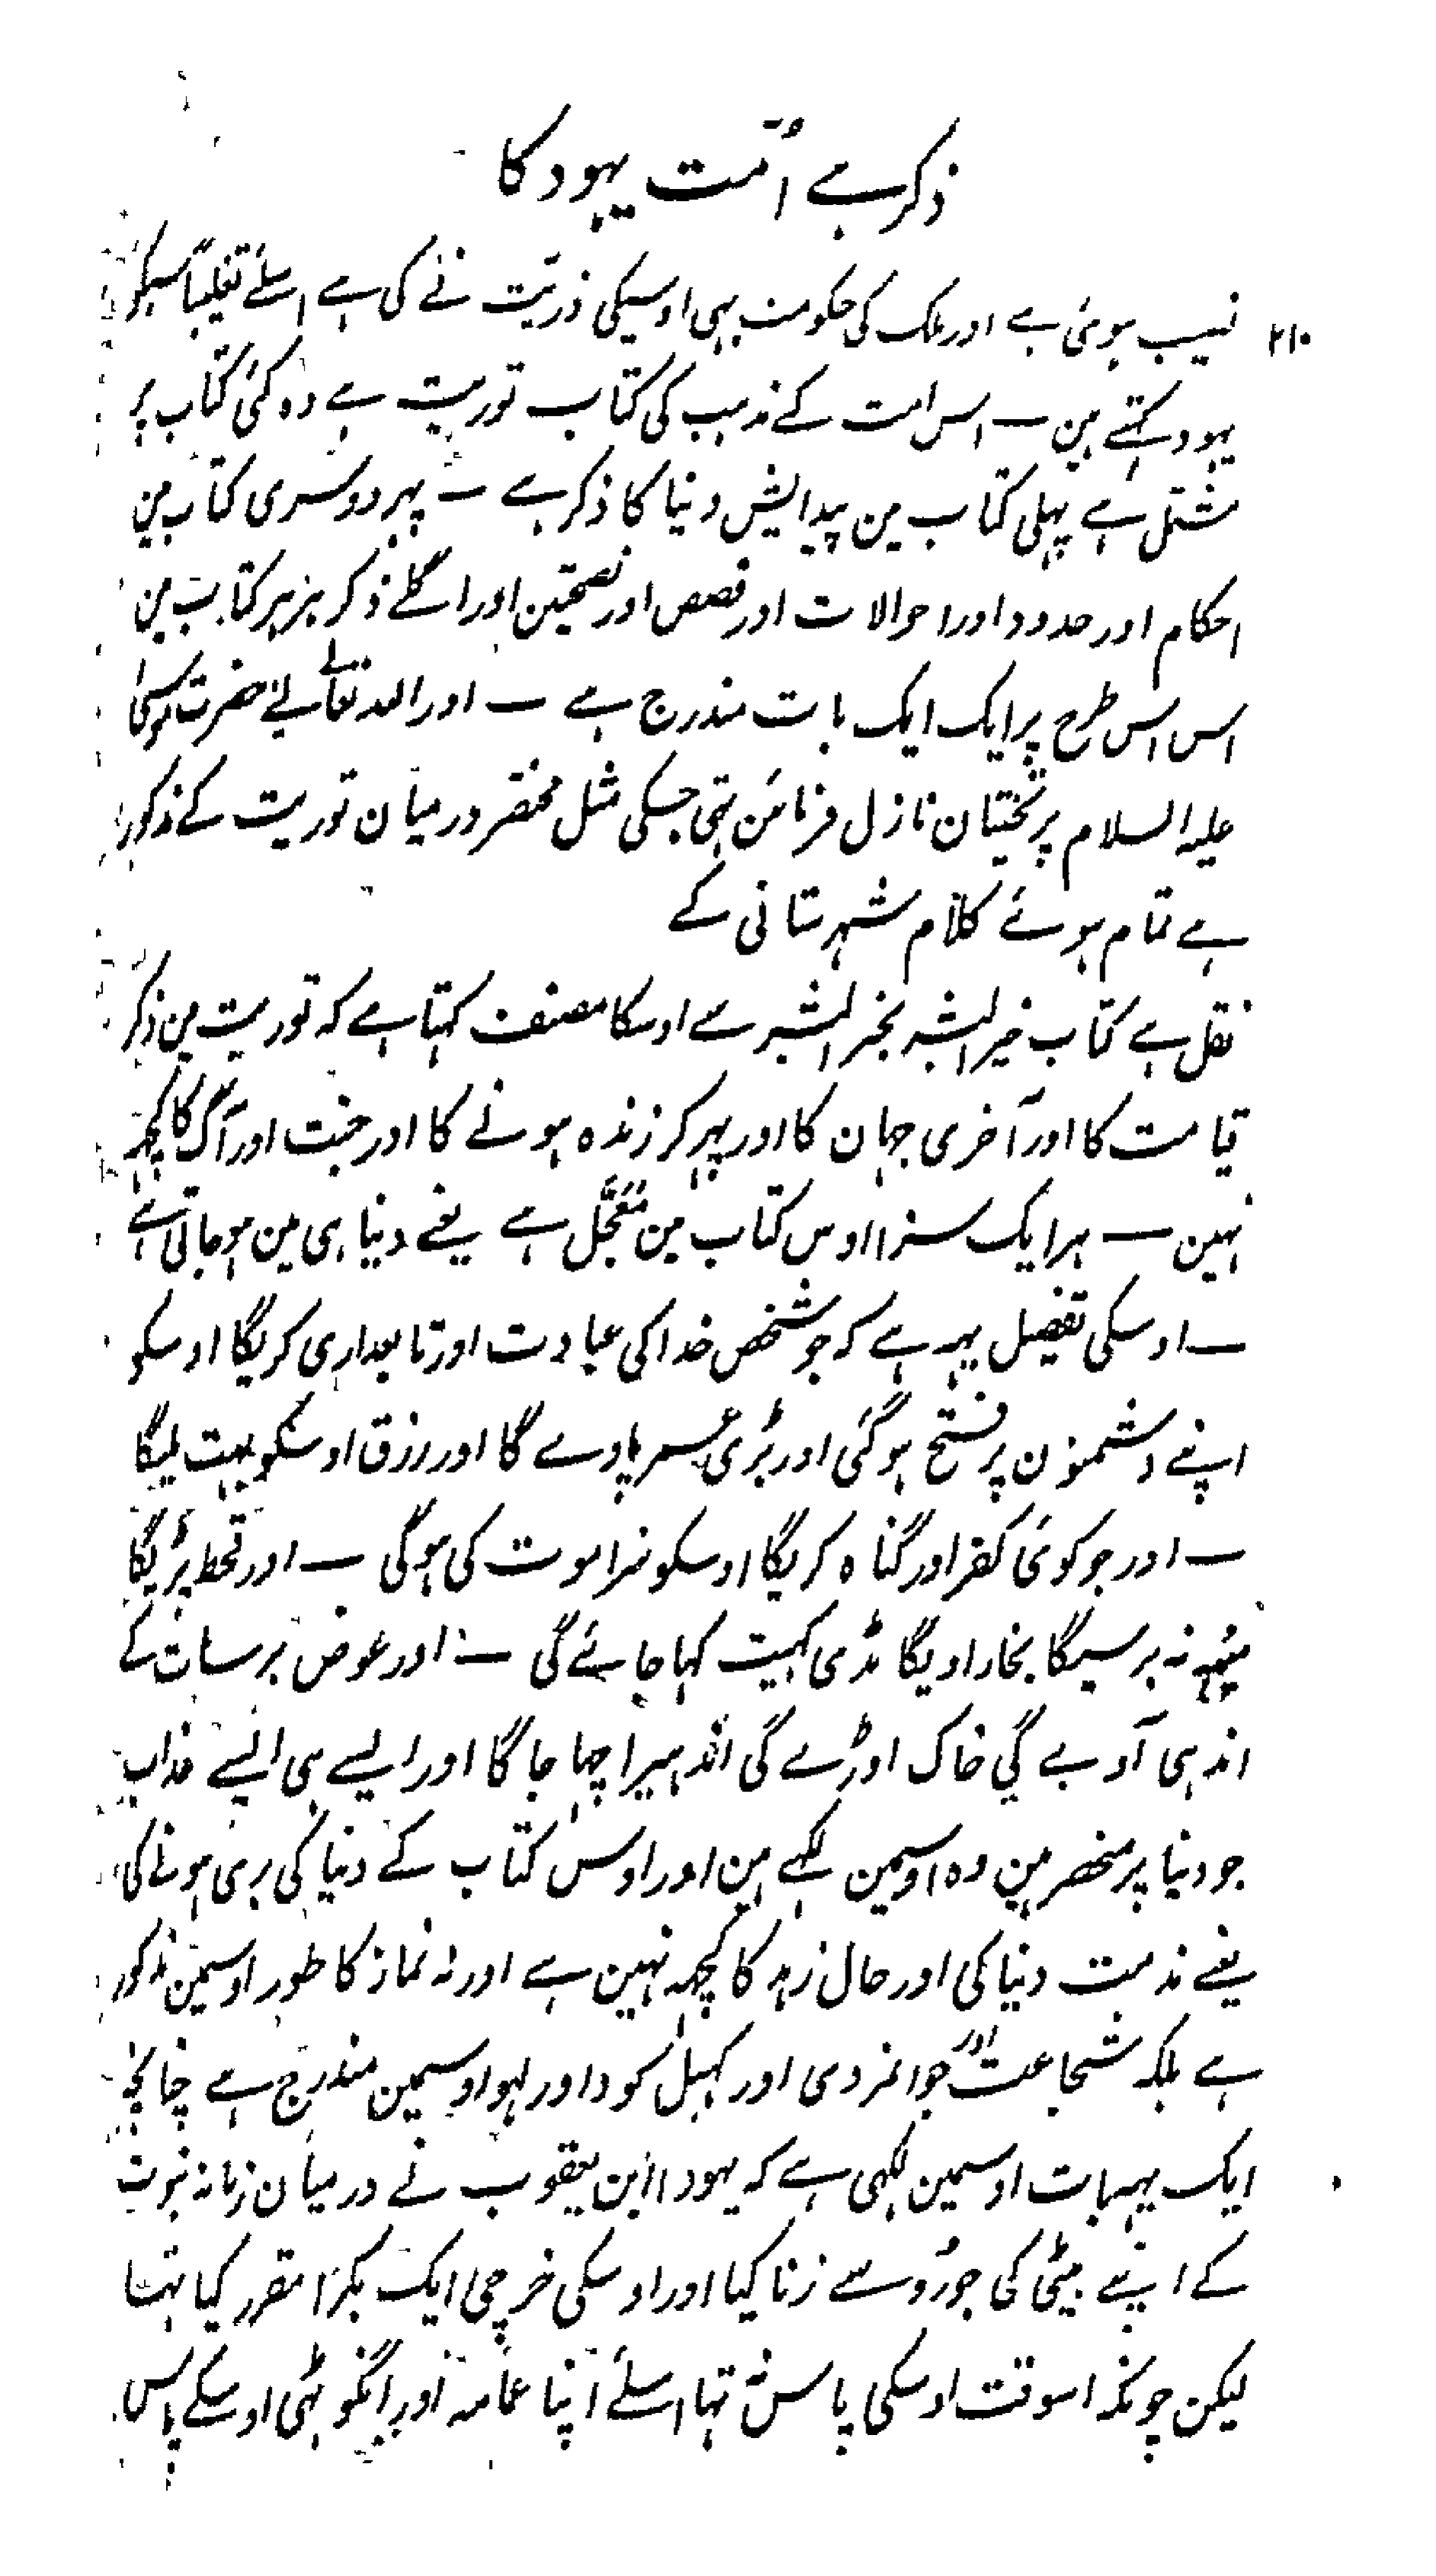 ذکر ہے اُمّت یہود کا
۲۱۰
نصیب ہوئی ہے اور ملک کی حکومت بہی اوسیکی ذریّت نے کی ہے اسلئے تغلیباً سبکو
یہود کہتے ہین ــ اس امت کے مذہب کی کتاب توریت ہے وہ کئی کتاب پر
مشتمل ہے پہلی کتاب مین پیدایش دنیا کا ذکر ہے ــ پہر دوسری کتاب مین
احکام اور حدود اور احوالات اور قصص اور نصیحتین اور اگلے ذکر ہر ہر کتاب مین
اس اس طرح پر ایک ایک بات مندرج ہے ــ اور اللہ تعالیٰ نے حضرت موسیٰ
علیہ السلام پر تختیان نازل فرمائین تہی جسکی مثل مختصر درمیان توریت کے مذکور
ہے تمام ہوئے کلام شہرستانی کے
نقل ہے کتاب خیر البشر بخیر البشر سے اوسکا مصنف کہتا ہے کہ توریت مین ذکر
قیامت کا اور آخری جہان کا اور پہر کر زندہ ہونے کا اور جنت اور آگ کا کچہہ
نہین ــ ہر ایک سزا اوس کتاب مین مُعَجَّل ہے یعنے دنیا ہی مین ہو جاتی ہے
ــ اوسکی تفصیل یہہ ہے کہ جو شخص خدا کی عبادت اور تابعداری کریگا اوسکو
اپنے دشمنون پر فتح ہوگئی اور بڑی عمر پاوے گا اور رزق اوسکو بہت ملیگا
ــ اور جو کوئی کفر اور گناہ کریگا اوسکو سزا موت کی ہوگی ــ اور قحط پڑیگا
مینہہ نہ برسیگا بخار اویگا ٹڈی کہیت کہا جائے گی ــ اور عوض برسات کے
اندہی آوے گی خاک اوڑے گی اندہیرا چہا جا گا اور ایسے ہی ایسے عذاب
جو دنیا پر منحصر ہین وہ اوسمین لکہے ہین اور اوس کتاب کے دنیا کی بری ہونے کی
یعنے مذمت دنیا کی اور حال زہد کا کچہہ نہین ہے اور نہ نماز کا طور اوسمین مذکور
ہے بلکہ شجاعت اور جوانمردی اور کہیل کود اور لہو اوسمین مندرج ہے چنانچہ
ایک یہہ بات اوسمین لکہی ہے کہ یہودا ابن یعقوب نے درمیان زمانہ نبوت
کے اپنے بیٹی کی جورُو سے زنا کیا اور اوسکی خرچی ایک بکرا مقرر کیا تہا
لیکن چونکہ اسوقت اوسکی پاس نہ تہا اسلئے اپنا عمامہ اور انگوٹہی اوسکے پاس